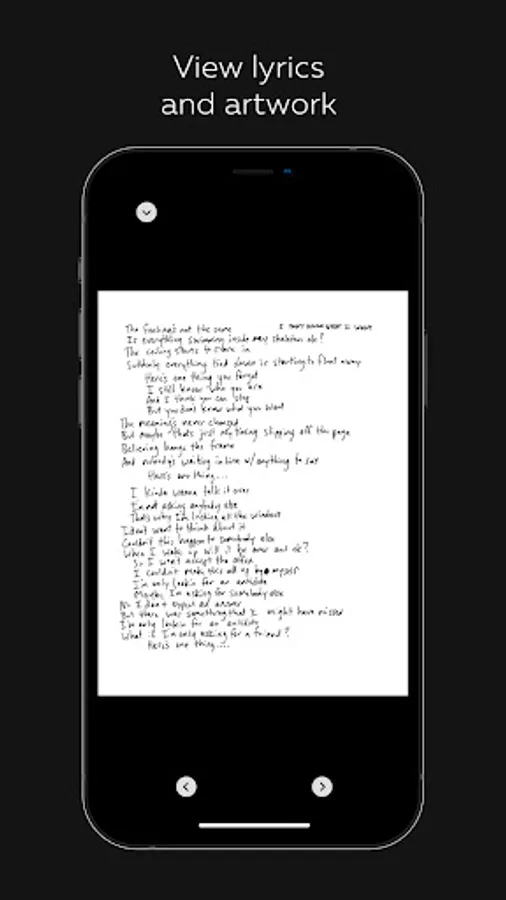 View lyrics
and artwork
The feeling's not the same
I don't know what I want
Is everything swimming inside my skeleton ok?
The ceiling starts to in
Suddenly everything tied down is starting to float away
Here's one thing you forget
I still know who you are
And I think you can stay
But you don't know what you want
The meanings never changed
But maybe that's just my timing slipping off the page
Believing hangs the frame
And nobody's waiting in line w/ anything to say
Here's one thing...
I kinda wanna talk it over
I'm not asking anybody else
That's why I'm looking at the window
I don't want to think about it
Couldn't this happen to somebody else
When I wake up will it be over and ok?
So I won't accept the offer
I couldn't make this all up by myself
I'm only lookin for an antidote
Maybe I'm asking for somebody else
No I don't expect an answer
But there was something that I might have missed
I'm only lookin for an antidote
What if I'm only asking for a friend?
Here's one thing...